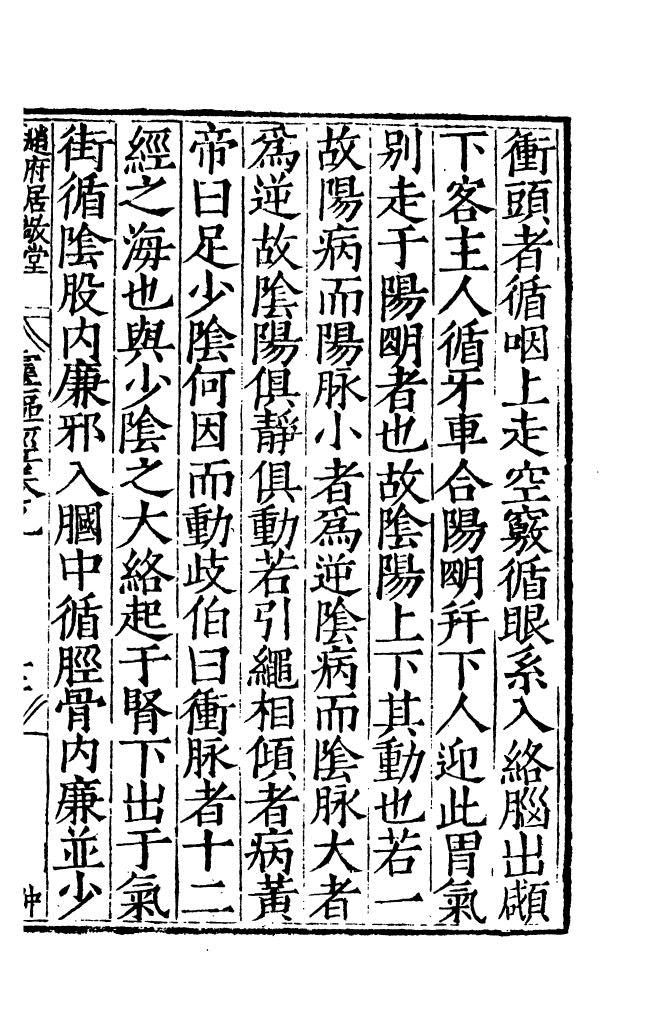 衝頭者循咽上走空竅循眼系入絡腦出顑
下客主人循牙車合陽明并下人迎此胃氣
别走于陽明者也故陰陽上下其動也若一
故陽病而陽脉小者為逆陰病而陰脉大者
為逆故陰陽俱靜俱動若引繩相傾者病黃
帝曰足少陰何因而動歧伯曰衝脉者十二
經之海也與少陰之大絡起于腎下出于氣
街循陰股内廉邪入膕中循脛骨内廉並少
趙府居敬堂